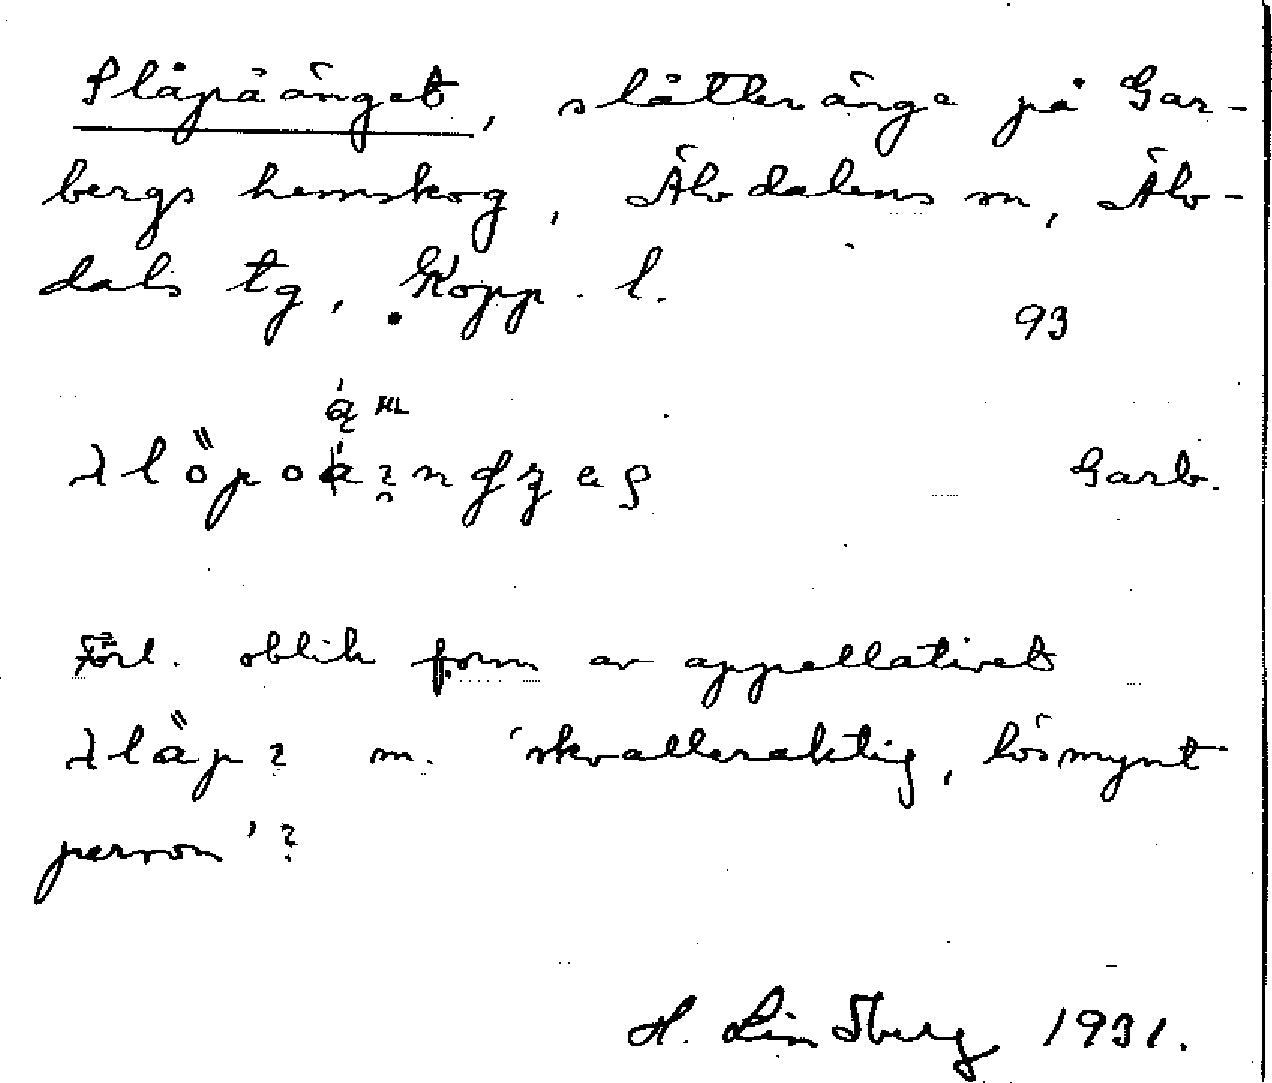 Slåpåänget, slåtteränge på Gar-
bergs hemskog, Älvdalens sn, Älv-
dals tg, Kopp. l.
93
Garb.
Förl. oblik form av appellativet
m. 'skvalleraktig, lösmynt
person'?
H. Lindberg 1931.